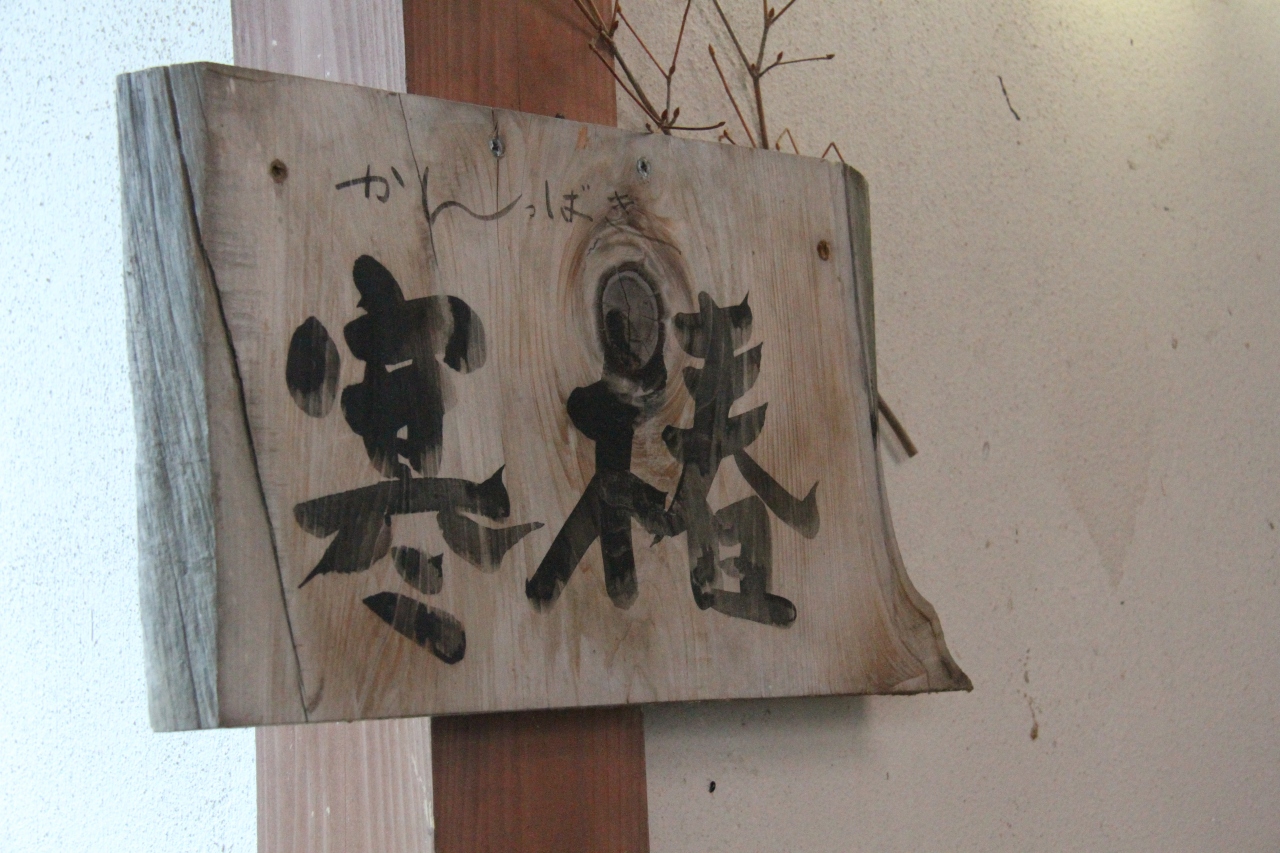 かんつばき
寒椿